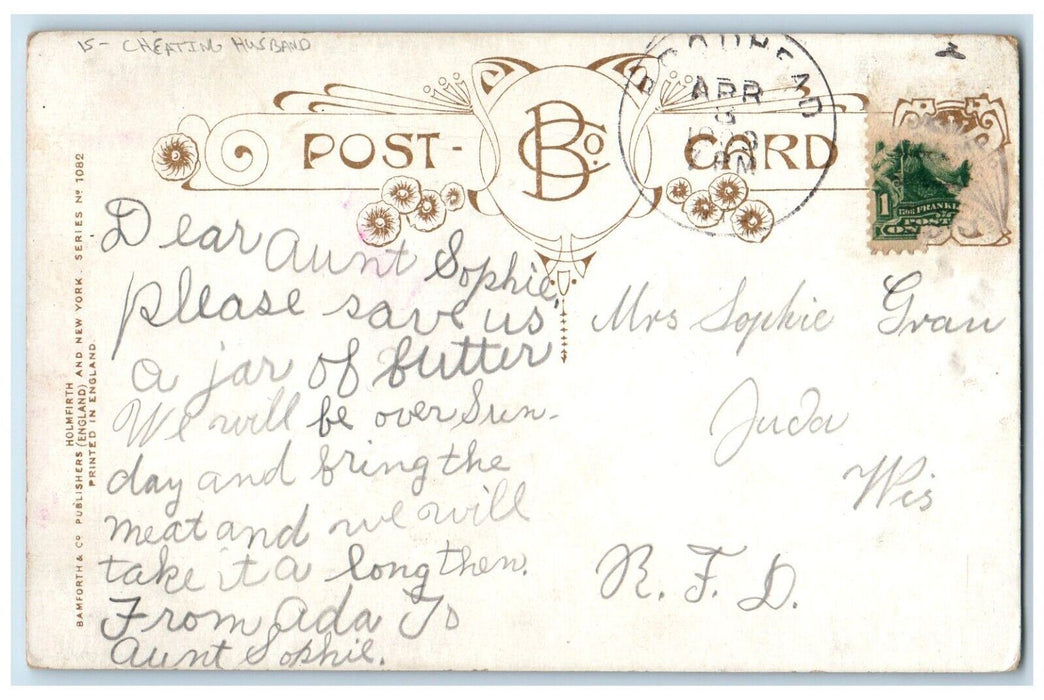 15 - CHEATING HUSBAND
POST-
BCo.
CARD
BRODHEAD
APR
9
1909
AM
1
BEN. FRANKLIN
POST
ON
BAMFORTH & Co PUBLISHERS (ENGLAND) AND NEW YORK. SERIES No 1082
HOLMFIRTH
PRINTED IN ENGLAND.
Dear Aunt Sophie,
please save us
a jar of butter
We will be over Sun-
day and bring the
meat and we will
take it a long then.
From Ada To
Aunt Sophie.
Mrs Sophie Gran
Juda
Wis
R. F. D.